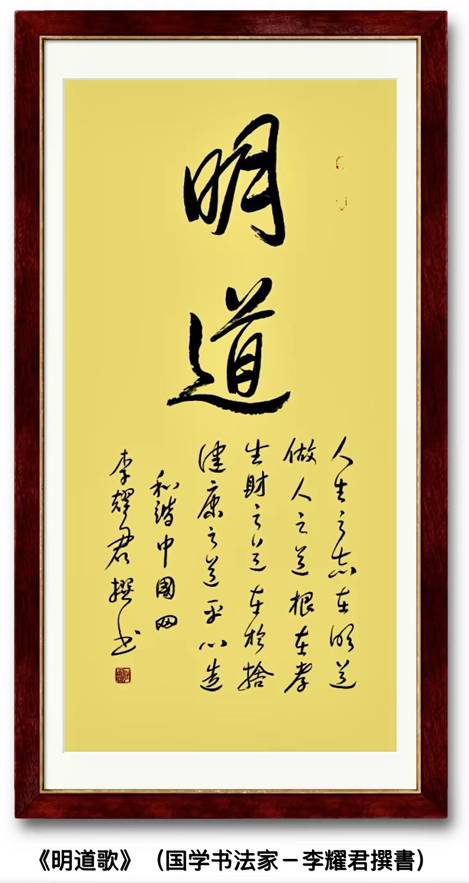 明
道
人生之志在明道
做人之道根在孝
生財之道在於捨
健康之道平心造
和谐中国网
李耀君撰书
《明道歌》（国学书法家－李耀君撰書）